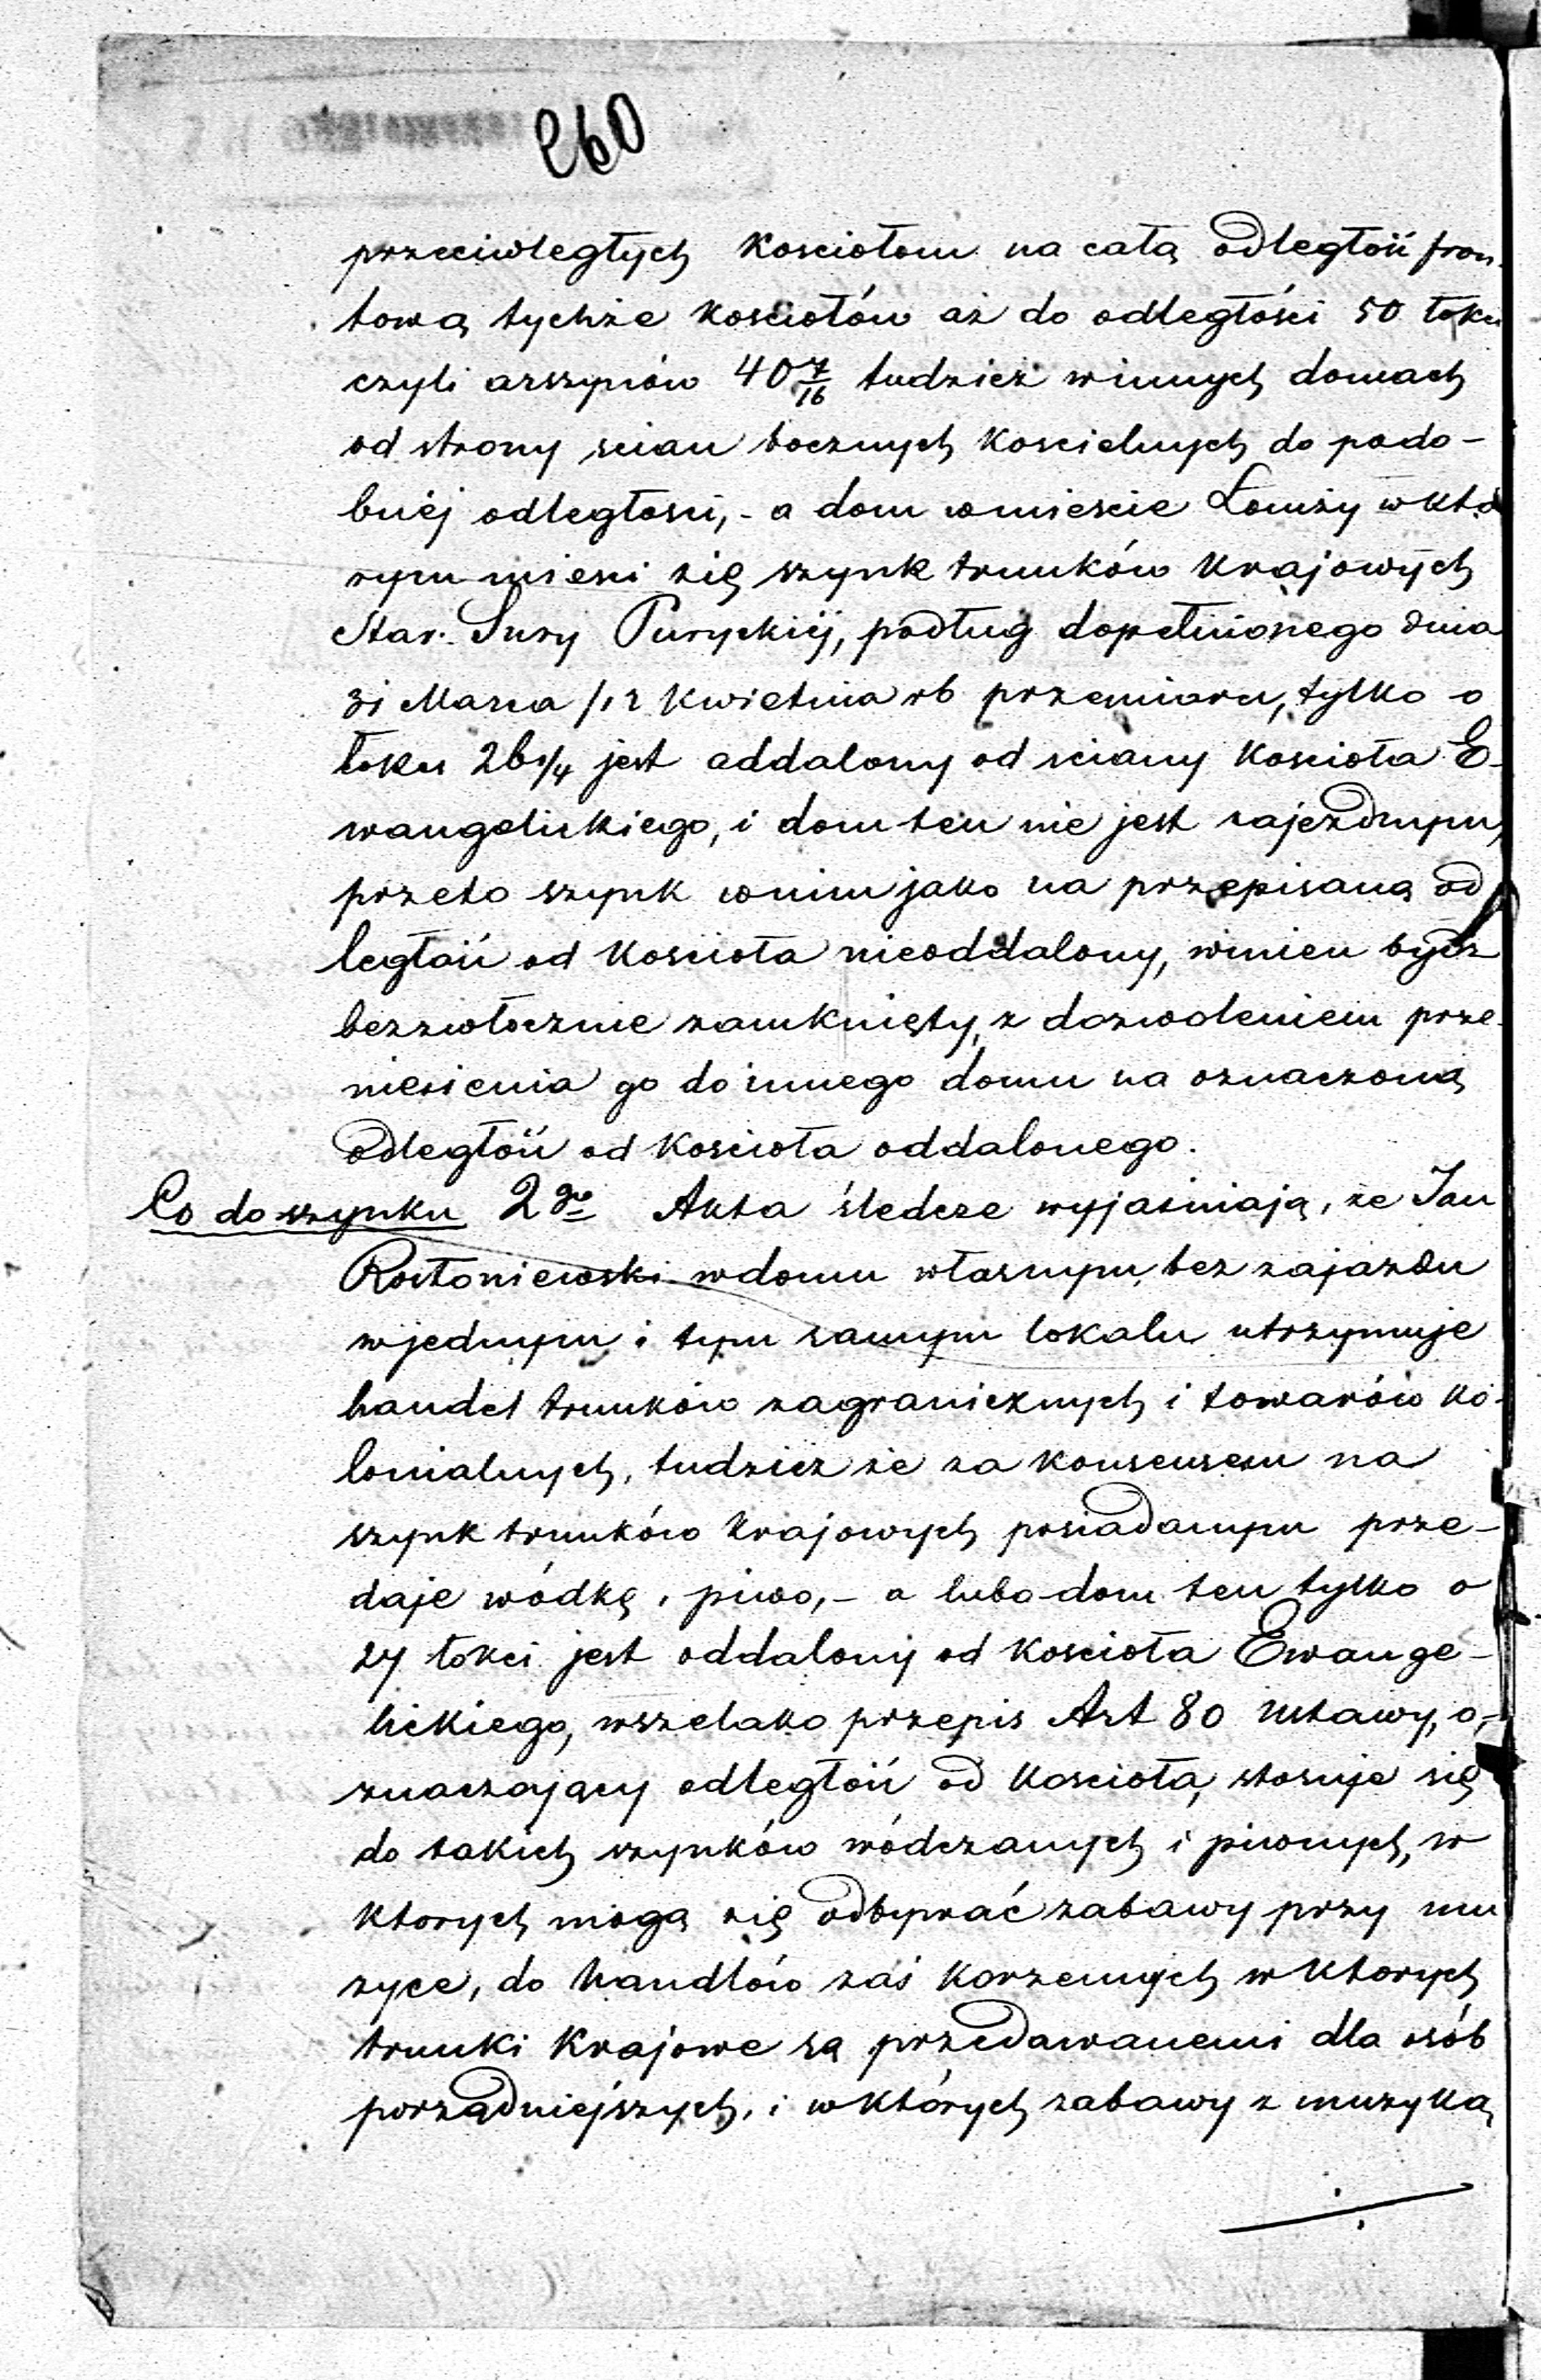 260
przeciwległych kosciołom na całą odległość fron-
tową tychże kosciołów aż do odległości 50 łokci
czyli arszynów 40 7/16 tudzież winnych domach
od strony scian bocznych koscielnych do podo-
bnéj odległosci, - a dom wmiescie Łomży w któ
rym miesci się szynk trunków krajowych
Star. Sury Puryckiéj, podług dopełnionego dnia
31 Marca/12 Kwietnia rb przemiaru, tylko o
łokci 26 1/4 jest addalony od sciany kościoła E-
wangelickiego, i dom ten nie jest zajezdnym,
przeto szynk wnim jako na przepisaną od
ległość od kościoła nieoddalony, winien bydz
bezzwłocznie zamknięty, z dozwoleniem prze-
niesienia go do innego domu na oznaczoną
odległość od kościoła oddalonego.
Co do szynku 2go Akta śledcze wyjaśniają, że Jan
wdomu własnym, bez zajazdu
wjednym i tym samym lokalu utrzymuje
handel trunków zagranicznych i towarów ko-
lonialnych, tudzież że za konsensem na
szynk trunków krajowych posiadanym prze-
daje wódkę i piwo, - a lubo dom ten tylko o
27 łokci jest oddalony od kościoła Ewange-
lickiego, wszelako przepis Art 80 Ustawy, o-
znaczający odległość od kościoła, stosuje się
do takich szynków wódczanych i piwnych, w
ktorych mogą się odbywać zabawy przy mu
zyce, do handlów zaś korzennych w ktorych
trunki krajowe są przedawanemi dla osób
porządniejszych, i wktórych zabawy z muzyką